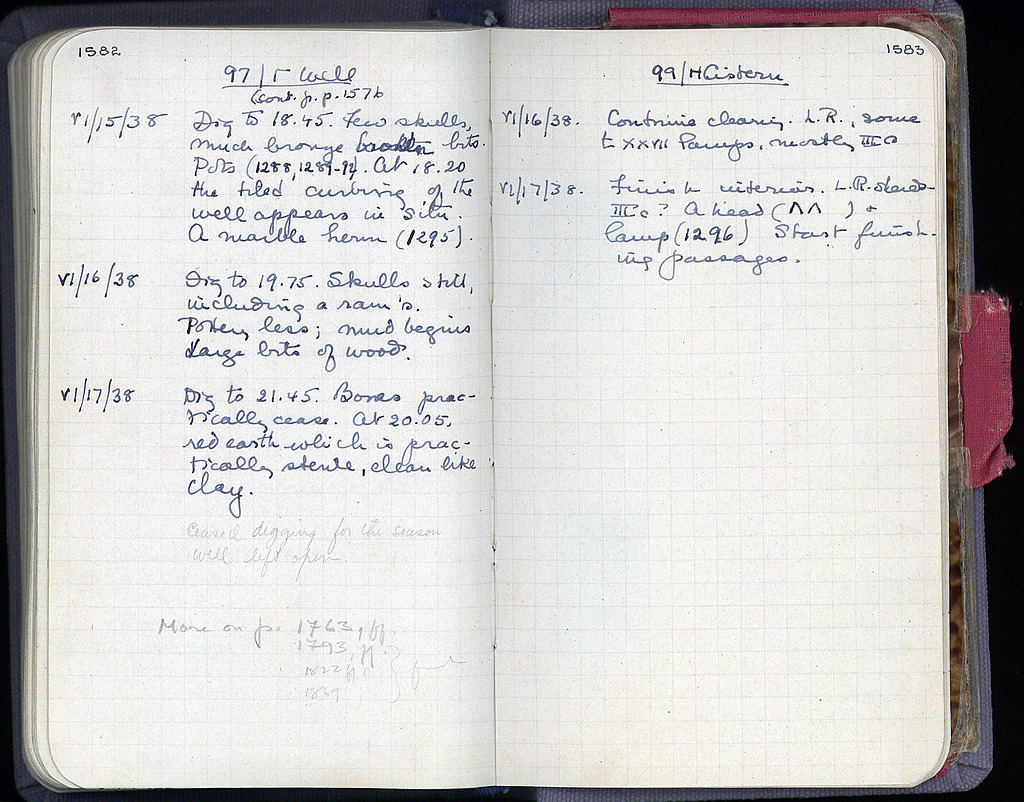 1582
97/Γ Well
(cont. fr. p. 1576
VI/15/38 Dig to 18.45. Few skulls,
much bronge bits.
Pots (1288, 1289-94). At 18.20
the tiled curbing of the
well appears in situ.
A marble herm (1295).
VI/16/38 Dig to 19.75. Skulls still,
including a ram's.
Pottery less; mud begins
Large bits of wood.
VI/17/38 Dig to 21.45. Bones prac-
tically cease. At 20.05,
red earth which is prac-
tically sterile, clean like
clay.
Ceased digging for the season
well left open.
More on p. 1763, ff.
1793, ff.
1822 ff.
1983
99/H Cistern
VI/16/38. Continue clearing. L.R., some
to XXVII lamps, mostly III c
VI/17/38. Finish interior. L.R. sherds
III c? A head (ΛΛ ) +
lamp (1296) Start finish-
ing passages.